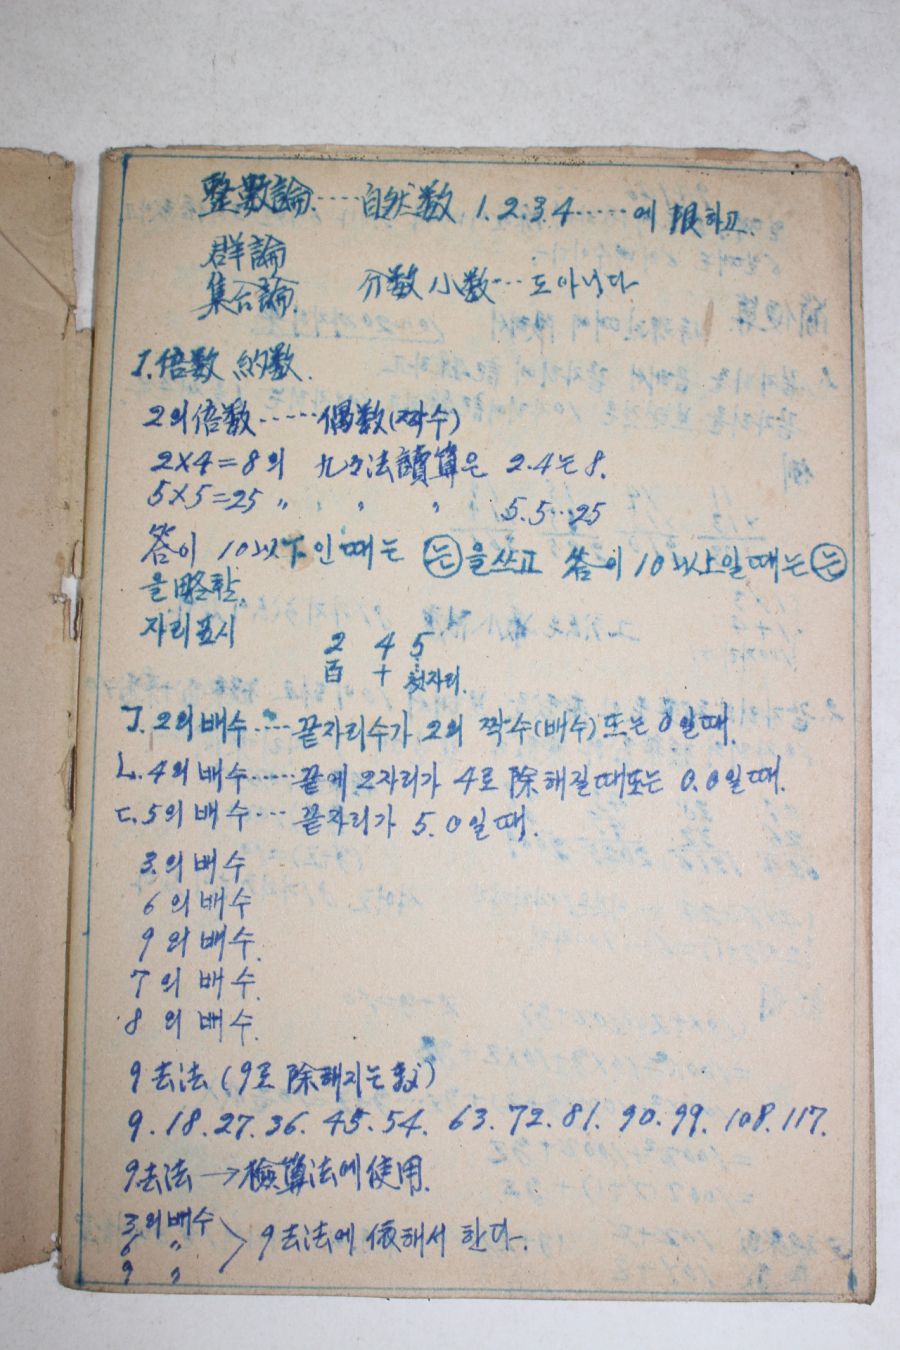 整數論.....自然数 1.2.3.4......에 限하고.
群論
集合論 分数 小数...도아니다
I.倍数 約数.
2의倍数......偶数(짝수)
2×4=8의 九々法讀算은 2.4는8.
5×5=25 〃 〃 〃 5.5...25
答이 10以下인때는 는을쓰고 答이10以上일때는 는
을略함.
자리표시
2 4 5
百 十 첫자리.
ㄱ.2의배수....끝자리수가 2의 짝수(배수)또는 0일때.
ㄴ.4의배수.....끝에 2자리가 4로 除해질때또는 0.0일때.
ㄷ.5의배수...끝자리가 5.0일때.
3의배수
6의배수
9의배수.
7의배수.
8의배수.
9去法(9로 除해지는 数)
9.18.27.36.45.54.63.72.81.90.99.108.117.
9去法→檢算法에使用.
3의배수
6 〃 9去法에 依해서 한다.
9 〃